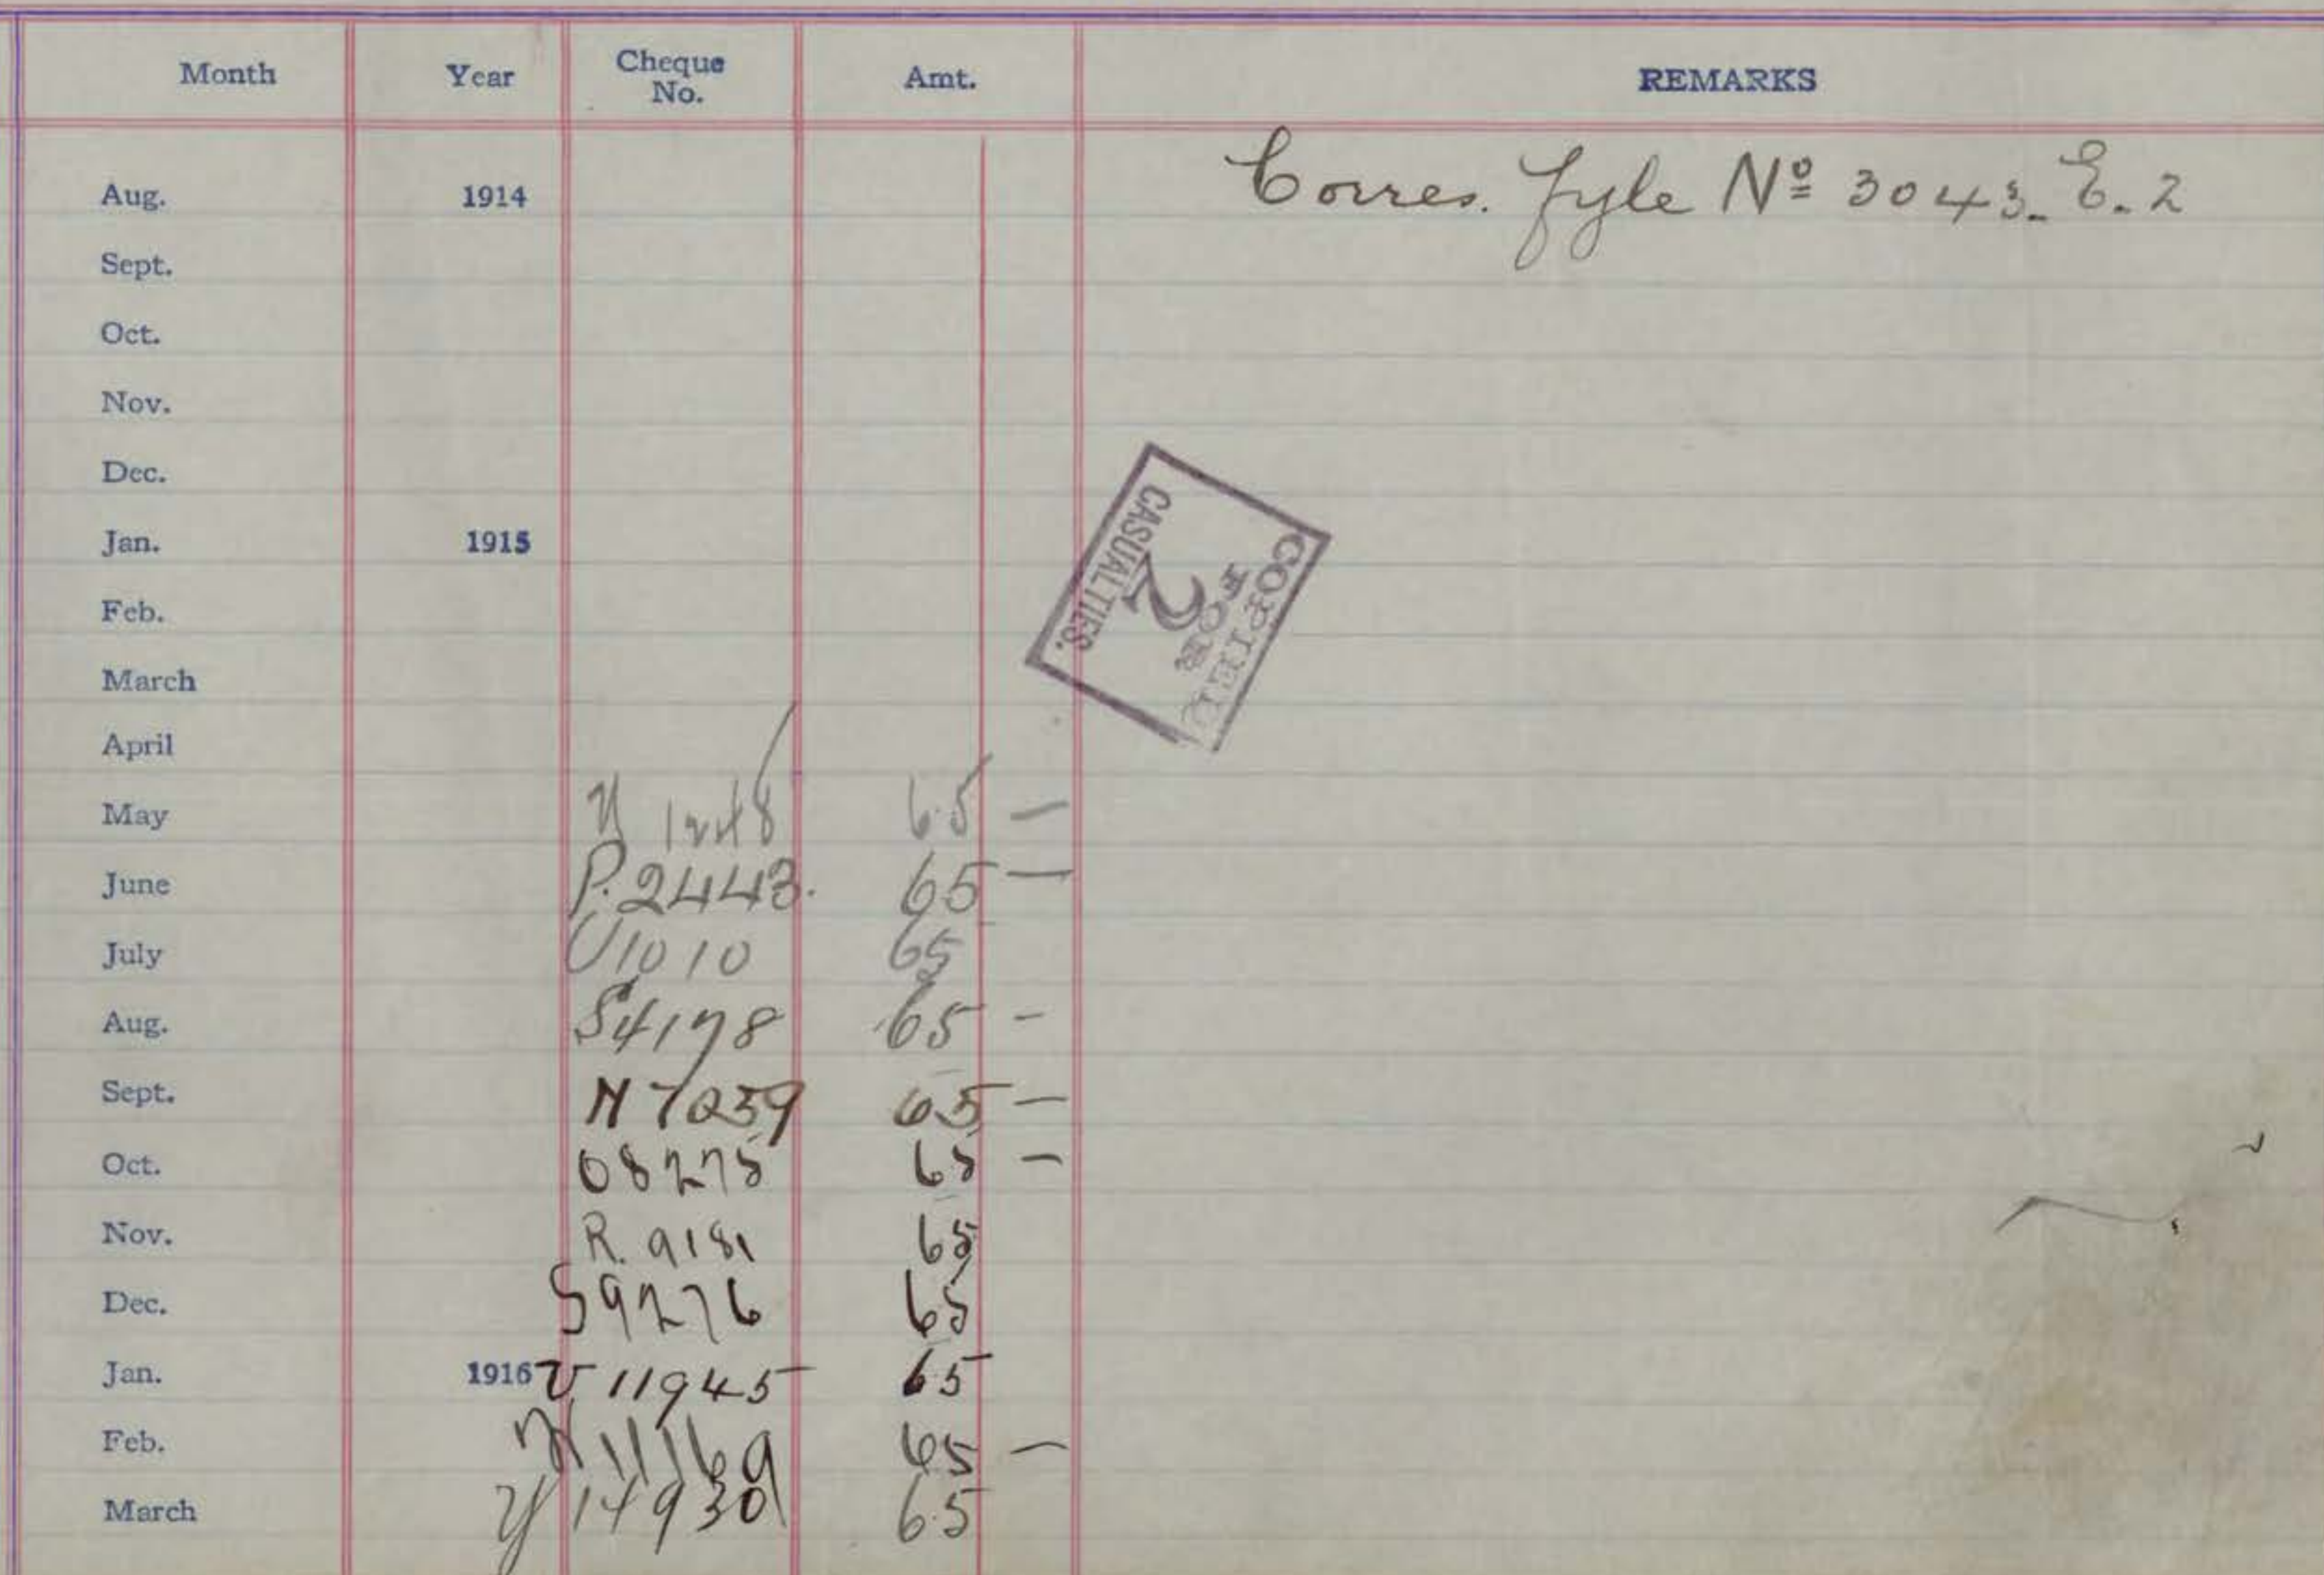 Month Year Cheque No. Amt. REMARKS
Aug. 1914 Corres. Fyle Nº 3043. E. 2
Sept.
Oct.
Nov.
Dec.
Jan. 1915
COPIED
FOR
2
CASUALTIES.
Feb.
March
April
May 65 —
June P. 2443. 65 —
July U1010 65
Aug. S4178 65 —
Sept. N 7259 65 —
Oct. O8275 65 —
Nov. R. 9181 65
Dec. S9276 65
Jan. 1916 V 11945 65
Feb. 11169 65 —
March Y 14930 65